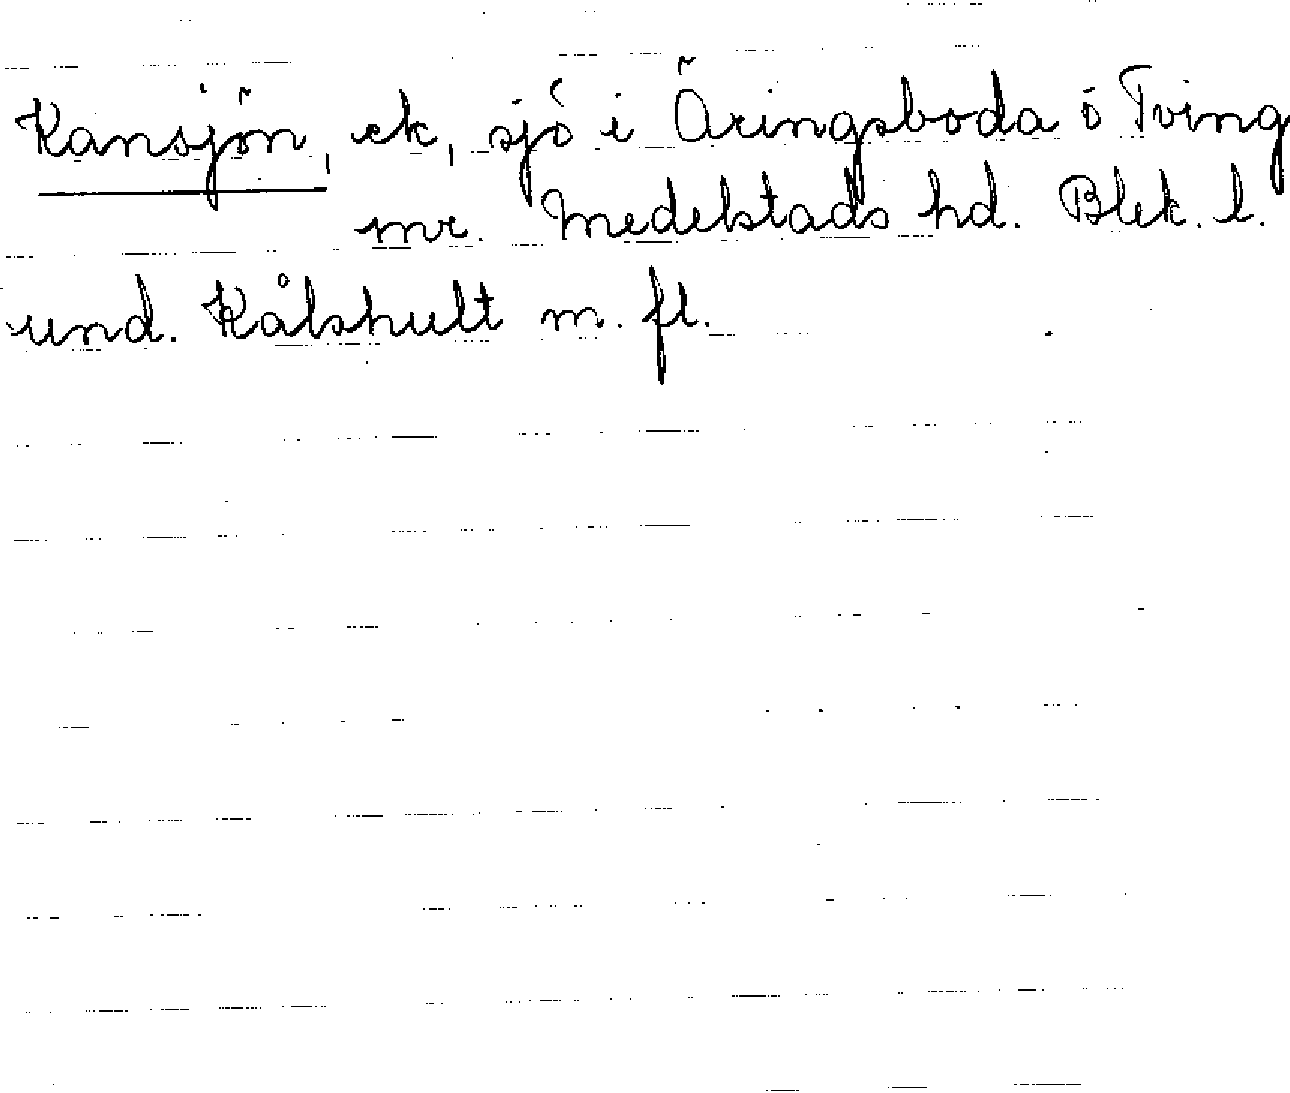 Kansjön, ek, sjö i Äringsboda ö Tving
mr. Medelstads hd. Blek. l.
und. Kålshult m. fl.